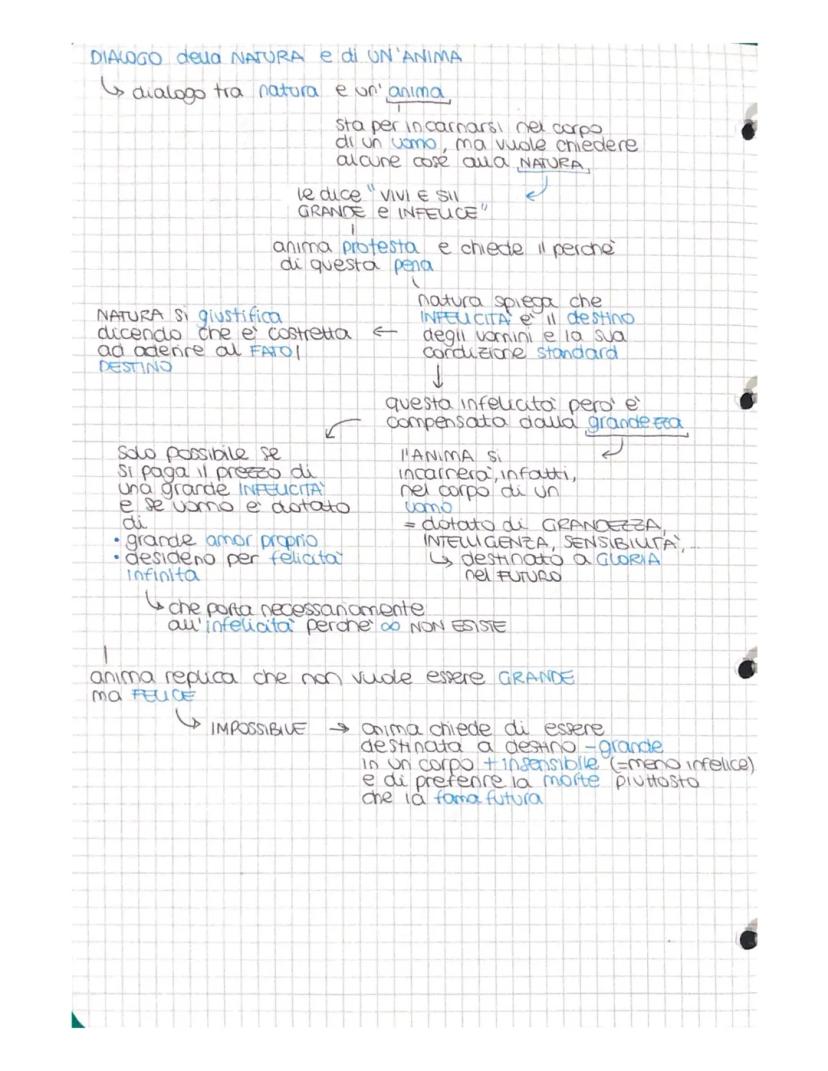 DIALOGO della NATURA e di UN'ANIMA
↳ dialogo tra natura e un' anima
sta per incarnarsi nel corpo
di un uomo, ma vuole chiedere
alcune cose alla NATURA
le dice "VIVI E SII
GRANDE e INFELICE"
anima protesta e chiede il perchè
di questa pena
natura spiega che
INFELICITÀ è il destino
degli uomini e la sua
condizione standard
NATURA si giustifica
dicendo che è costretta ←
ad aderire al FATO/
DESTINO
↓
questa infelicità però è
compensata dalla grandezza
solo possibile se
si paga il prezzo di
una grande INFELICITÀ
e se uomo è dotato
di
• grande amor proprio
• desiderio per felicità
infinita
↳ che porta necessariamente
all'infelicità perchè ∞ NON ESISTE
l'ANIMA si
incarnerà, infatti,
nel corpo di un
uomo
= dotato di GRANDEZZA,
INTELLIGENZA, SENSIBILITÀ,...
↳ destinato a GLORIA
nel FUTURO
anima replica che non vuole essere GRANDE
ma FELICE
↳ IMPOSSIBILE → anima chiede di essere
destinata a destino -grande
in un corpo +insensibile (=meno infelice)
e di preferire la morte piuttosto
che la fama futura